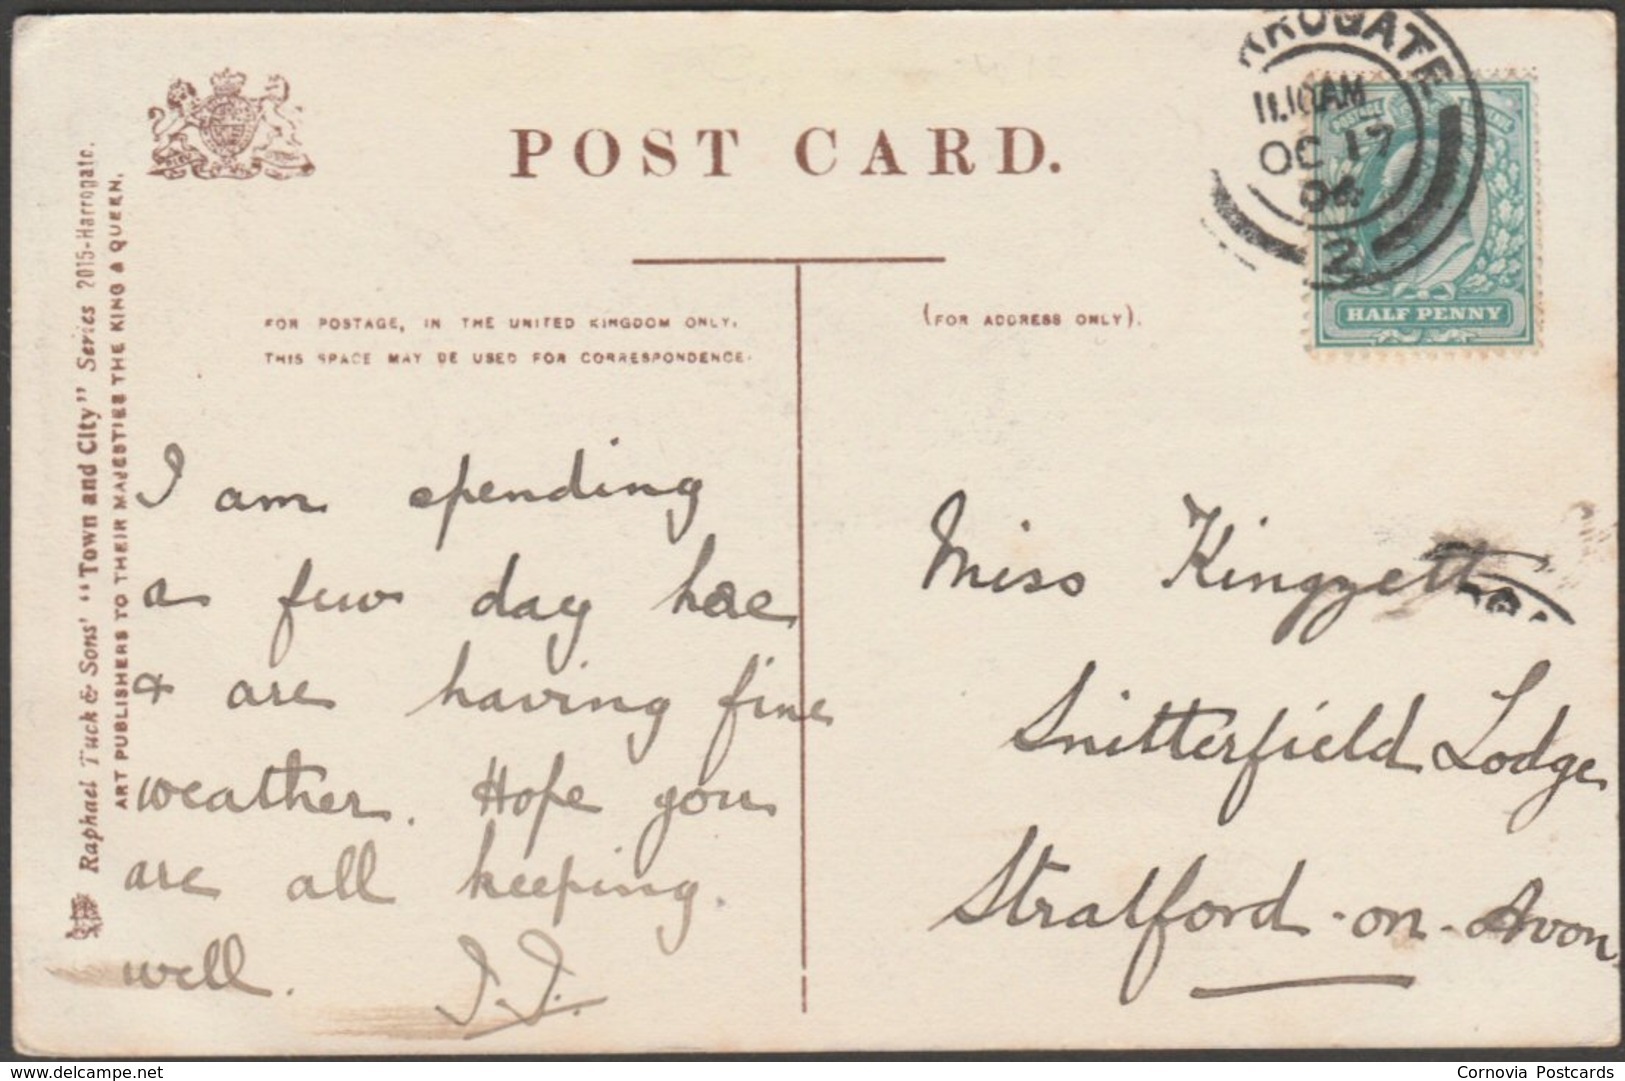 RROGATE
11.10AM
OC 17
06
2
POST CARD.
HALF PENNY
FOR POSTAGE, IN THE UNITED KINGDOM ONLY,
THIS SPACE MAY BE USED FOR CORRESPONDENCE.
(FOR ADDRESS ONLY).
Raphael Tuck & Sons' "Town and City" Series 2015-Harrogate.
ART PUBLISHERS TO THEIR MAJESTIES THE KING & QUEEN.
I am spending
a few day here
& are having fine
weather. Hope you
are all keeping.
well.
Miss Kingzett
Snitterfield Lodge
Stratford-on-Avon
delcampe.net
Cornovia Postcards